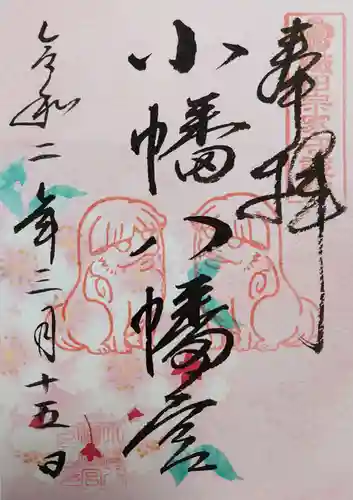 奉拝
小幡八幡宮
令和二年三月十五日